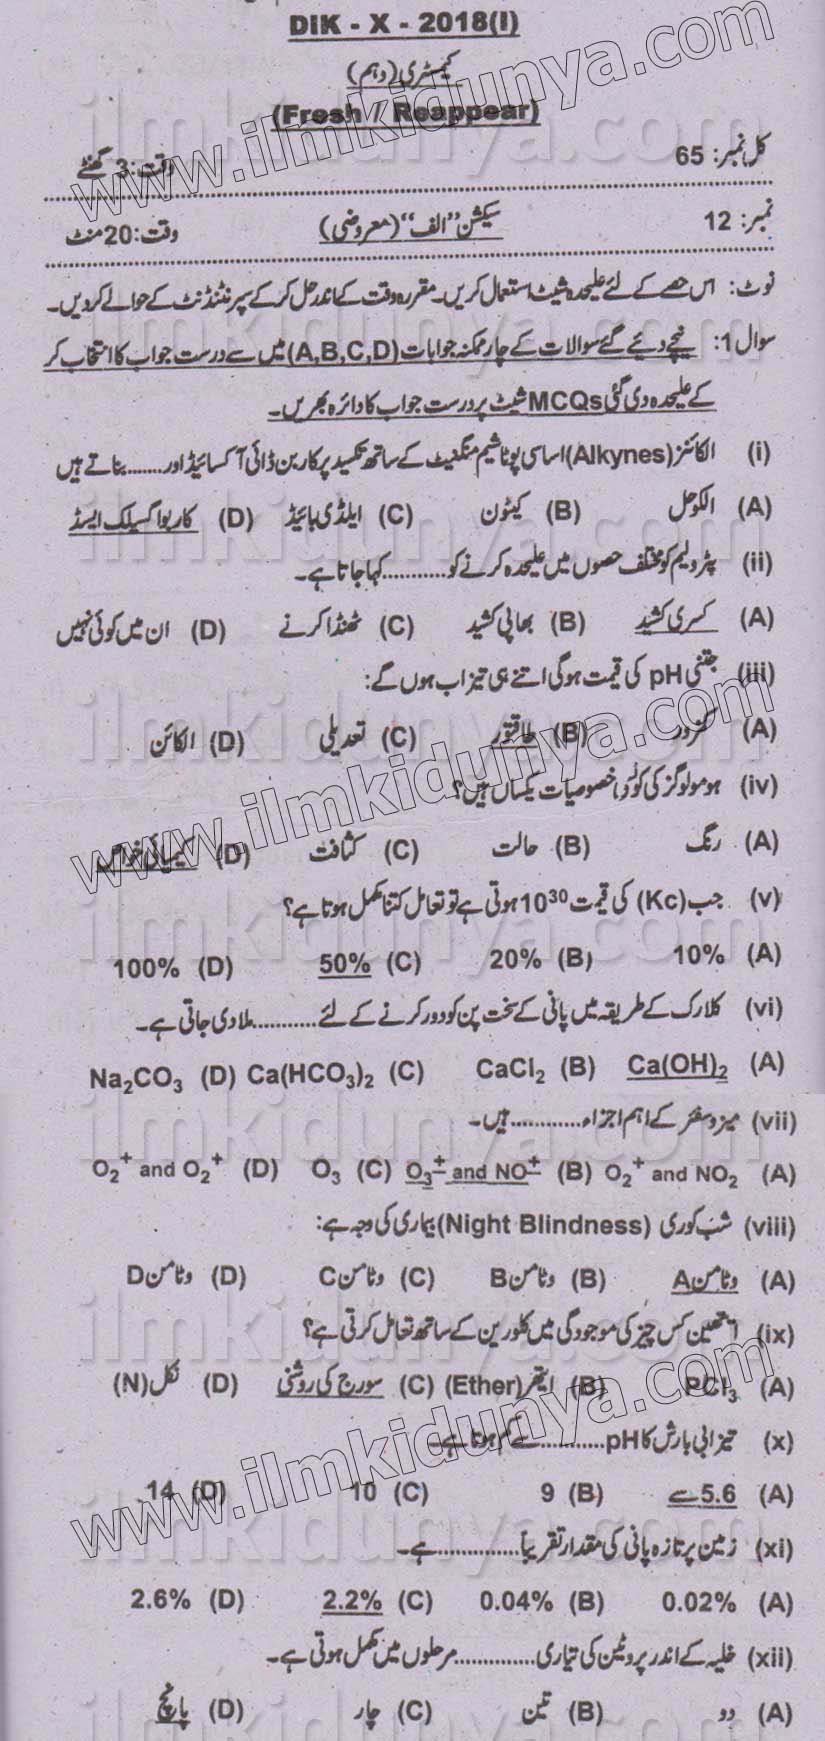 DIK - X - 2018(I)
کیمسٹری (دہم)
(Fresh / Reappear)
کل نمبر: 65 وقت: 3 گھنٹے
نمبر: 12 سیکشن "الف" (معروضی) وقت: 20 منٹ
نوٹ: اس حصے کے لئے علیحدہ شیٹ استعمال کریں۔ مقررہ وقت کے اندر حل کر کے سپرنٹنڈنٹ کے حوالے کر دیں۔
سوال 1: نیچے دئیے گئے سوالات کے چار ممکنہ جوابات (A,B,C,D) میں سے درست جواب کا انتخاب کر
کے علیحدہ دی گئی MCQs شیٹ پر درست جواب کا دائرہ بھریں۔
(i) الکائنز (Alkynes) اساسی پوٹاشیم منگنیٹ کے ساتھ تکسید پر کاربن ڈائی آکسائیڈ اور ....... بناتے ہیں
(A) الکوحل (B) کیٹون (C) ایلڈی ہائیڈ (D) کاربوآکسیلک ایسڈ
(ii) پٹرولیم کو مختلف حصوں میں علیحدہ کرنے کو ........... کہا جاتا ہے۔
(A) کسری کشید (B) بھاپی کشید (C) ٹھنڈا کرنے (D) ان میں کوئی نہیں
(iii) جتنی pH کی قیمت ہوگی اتنے ہی تیزاب ہوں گے:
(A) کمزور (B) طاقتور (C) تعدیلی (D) الکائن
(iv) ہومولوگز کی کونی خصوصیات یکساں ہیں؟
(A) رنگ (B) حالت (C) کثافت (D) کیمیائی خواص
(v) جب (Kc) کی قیمت 10³⁰ ہوتی ہے تو تعامل کتنا مکمل ہوتا ہے؟
(A) 10% (B) 20% (C) 50% (D) 100%
(vi) کلارک کے طریقہ میں پانی کے سخت پن کو دور کرنے کے لئے ........... ملا دی جاتی ہے۔
(A) Ca(OH)₂ (B) CaCl₂ (C) Ca(HCO₃)₂ (D) Na₂CO₃
(vii) میزوسفئر کے اہم اجزاء ............ ہیں۔
(A) O₂⁺ and NO₂ (B) O₃⁺ and NO⁺ (C) O₃ (D) O₂⁺ and O₂⁺
(viii) شب کوری (Night Blindness) بیماری کی وجہ ہے:
(A) وٹامن A (B) وٹامن B (C) وٹامن C (D) وٹامن D
(ix) ایتھین کس چیز کی موجودگی میں کلورین کے ساتھ تعامل کرتی ہے؟
(A) PCl₃ (B) ایتھر (Ether) (C) سورج کی روشنی (D) نکل (N)
(x) تیزابی بارش کا pH ........... سے کم ہوتا ہے۔
(A) 5.6 سے (B) 9 (C) 10 (D) 14
(xi) زمین پر تازہ پانی کی مقدار تقریباً .............. ہے۔
(A) 0.02% (B) 0.04% (C) 2.2% (D) 2.6%
(xii) خلیہ کے اندر پروٹین کی تیاری ............. مرحلوں میں مکمل ہوتی ہے۔
(A) دو (B) تین (C) چار (D) پانچ
www.ilmkidunya.com
www.ilmkidunya.com
www.ilmkidunya.com